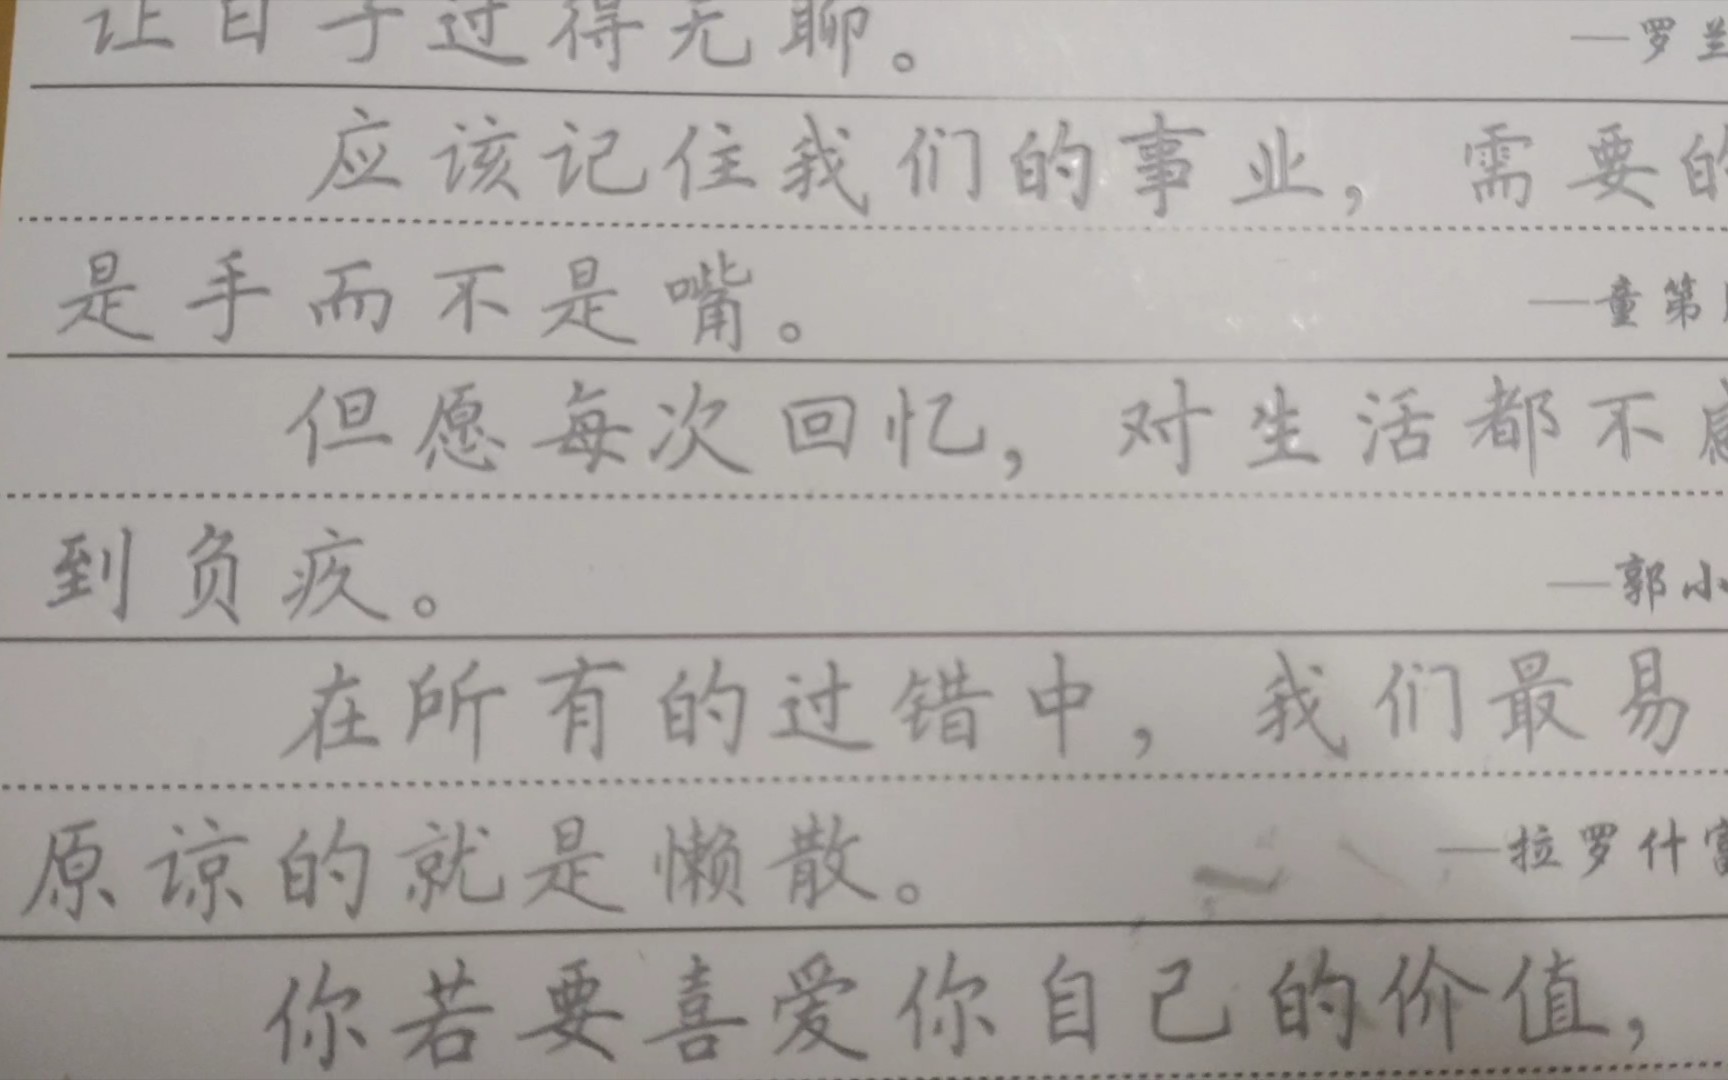 让日子过得无聊。
—罗兰
应该记住我们的事业，需要的
是手而不是嘴。
—童第
但愿每次回忆，对生活都不感
到负疚。
—郭小
在所有的过错中，我们最易
原谅的就是懒散。
—拉罗什富
你若要喜爱你自己的价值，